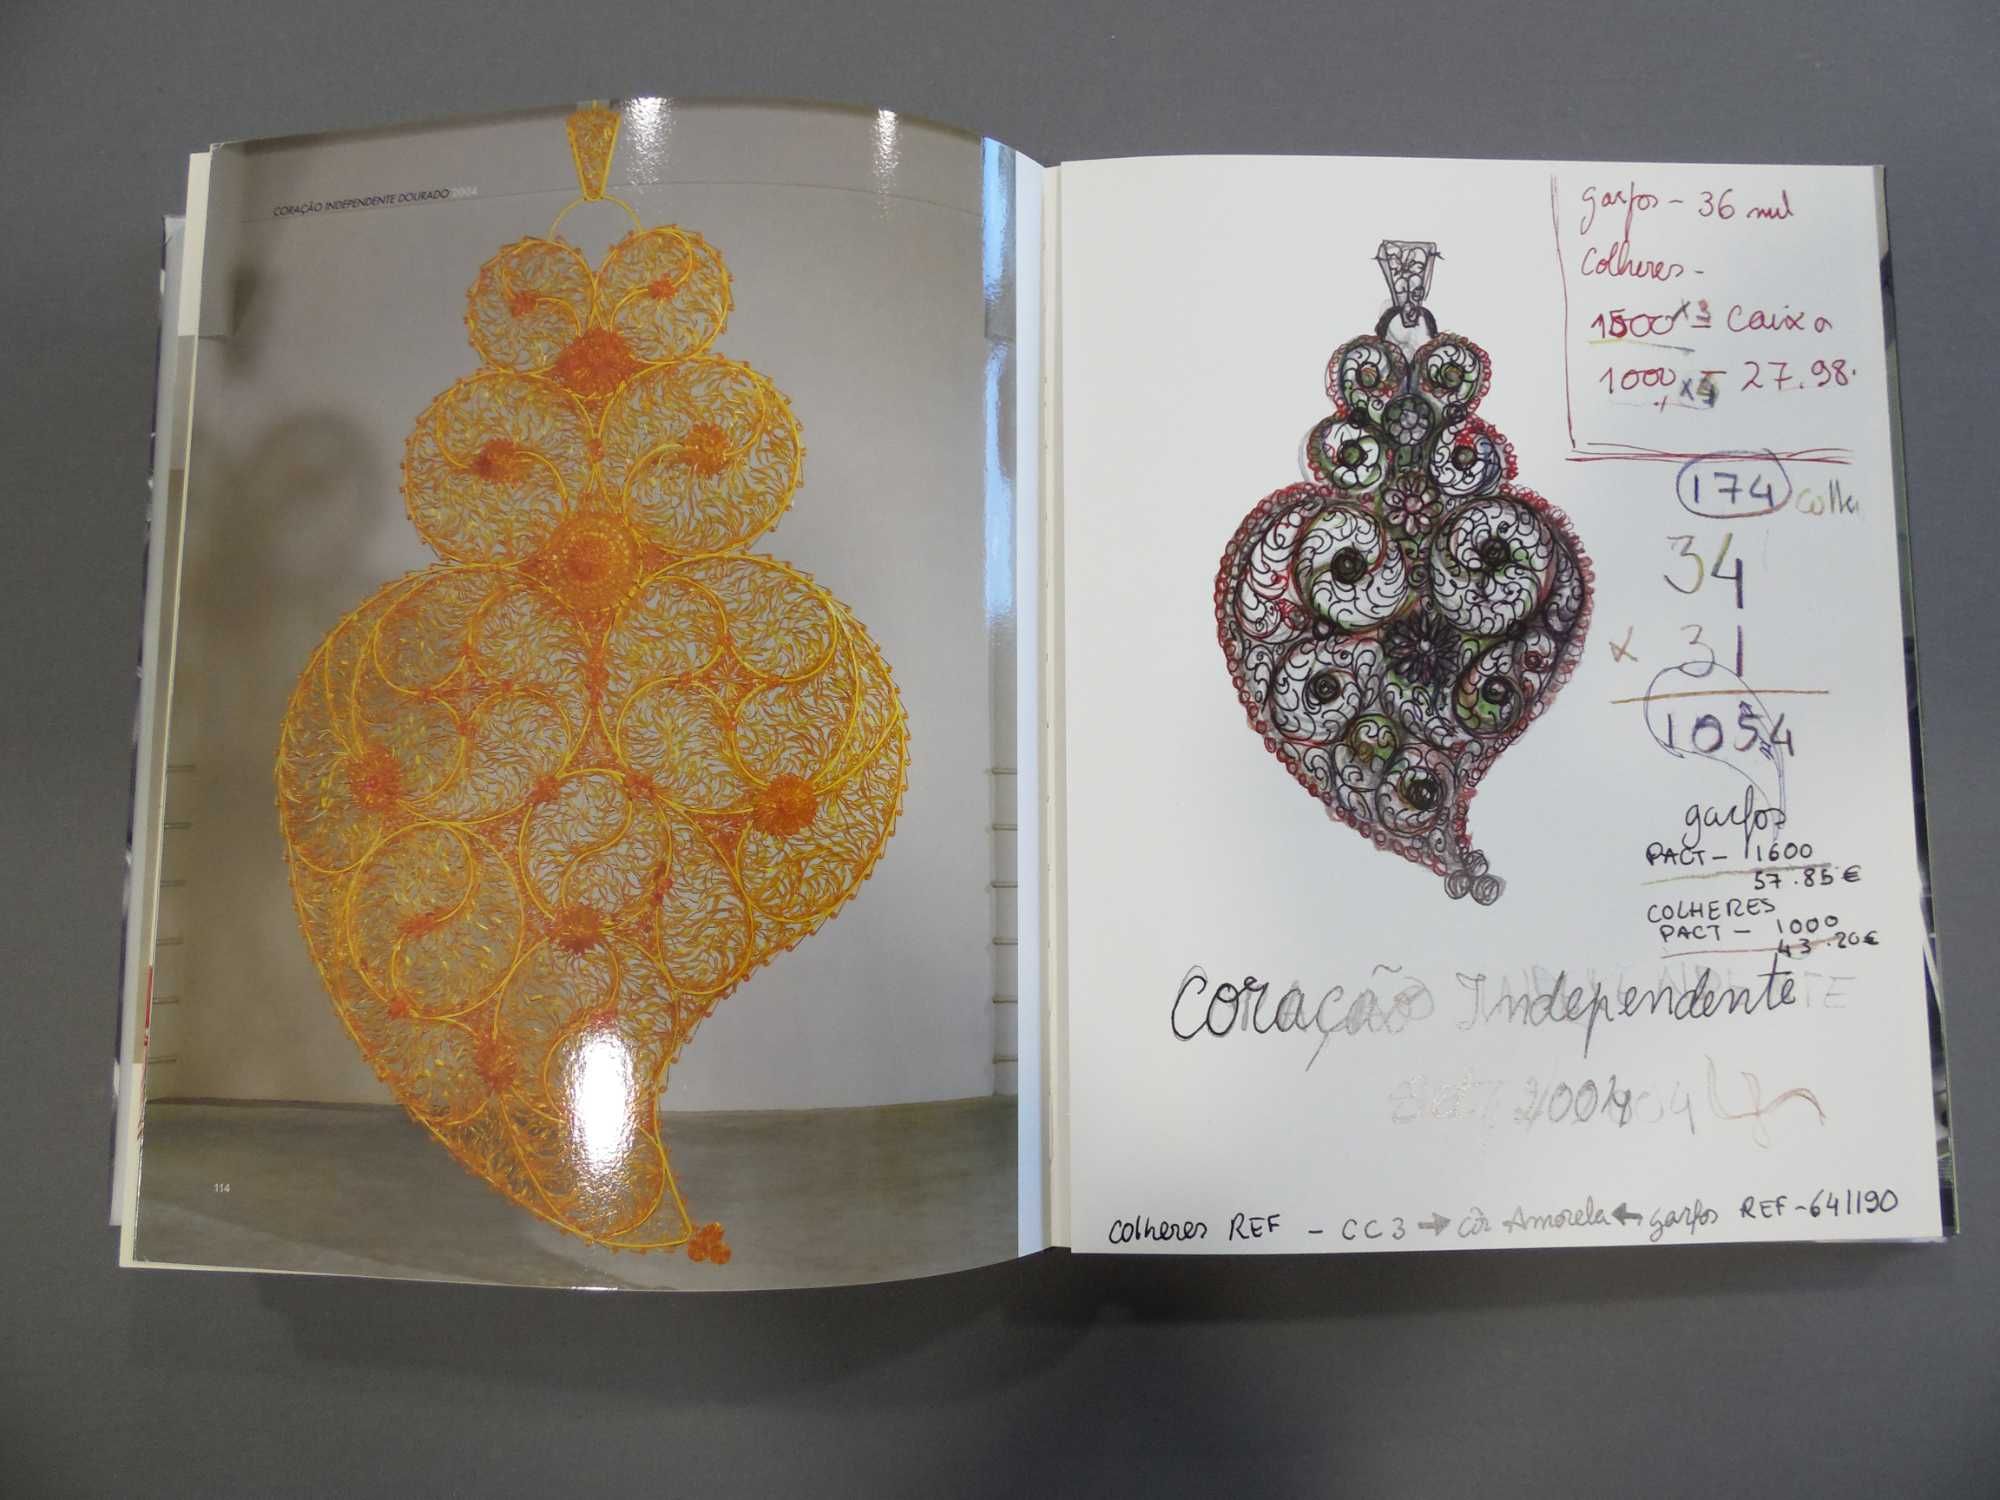 CORAÇÃO INDEPENDENTE DOURADO/2004
114
garfos - 36 mil
Colheres -
1500 x3 = Caixa
1000 x4 = 27.98.
174
34
x 31
1054
garfos
PACT - 1600
57.85 €
COLHERES
PACT - 1000
43.20 €
Coração Independente
2004
colheres REF - CC3 → côr Amarela ← garfos REF - 641190